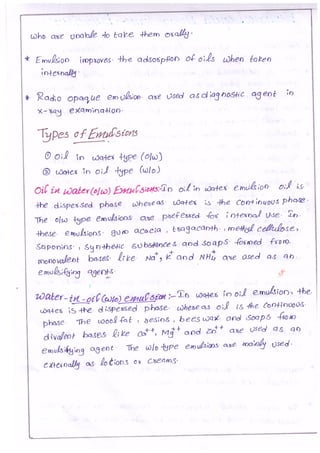 who are unable to take them orally.
* Emulsion improves the adsorption of oils when taken
internally.
* Radio opaque emulsion are used as diagnostic agent in
x-ray examination.
Types of Emulsions
① oil in water type (o/w)
② water in oil type (w/o)
Oil in water (o/w) Emulsions:- In oil in water emulsion oil is
the dispersed phase whereas water is the continuous phase.
The o/w type emulsions are preferred for internal use. In
these emulsions gum acacia, tragacanth, methyl cellulose,
Saponins, synthetic substances and soaps formed from
monovalent bases like Na+, K+ and NH4 are used as an
emulsifying agents.
Water-in-oil (w/o) emulsion:- In water in oil emulsion, the
water is the dispersed phase whereas oil is the continuous
phase. The wool fat, resins, bees wax and soaps from
divalent bases like Ca++, Mg++ and Zn++ are used as an
emulsifying agent. The w/o type emulsions are mainly used
externally as lotions or creams.